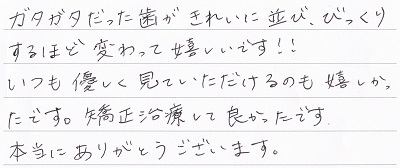 ガタガタだった歯がきれいに並び、びっくり
するほど変わって嬉しいです!!
いつも優しく見ていただけるのも嬉しかっ
たです。矯正治療して良かったです.
本当にありがとうございます。